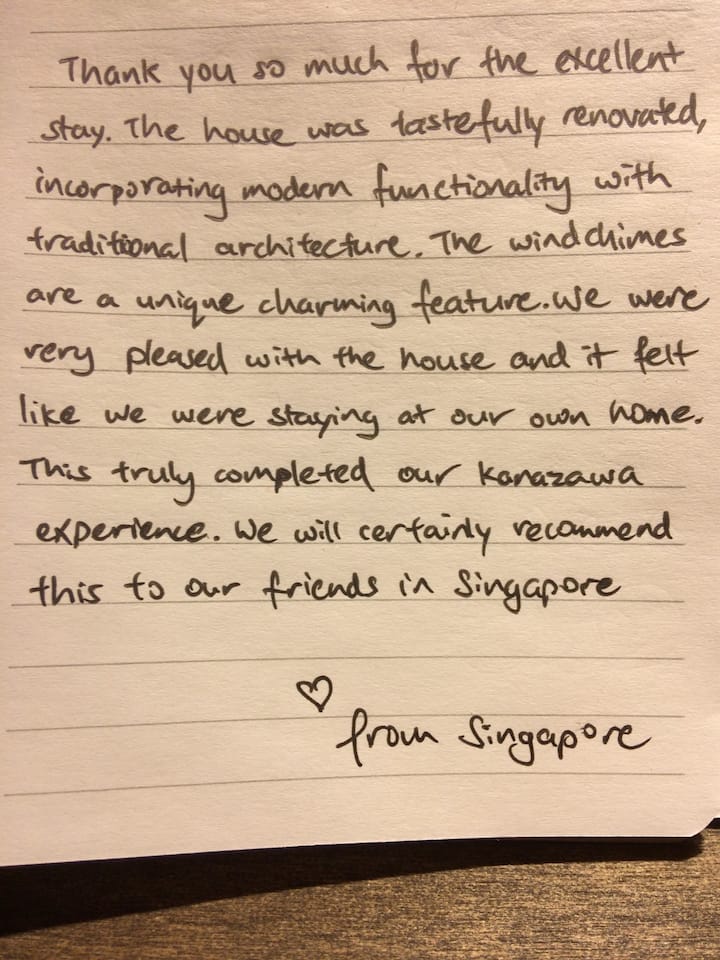 Thank you so much for the excellent
stay. The house was tastefully renovated,
incorporating modern functionality with
traditional architecture. The windchimes
are a unique charming feature. We were
very pleased with the house and it felt
like we were staying at our own home.
This truly completed our Kanazawa
experience. We will certainly recommend
this to our friends in Singapore
♡
from Singapore